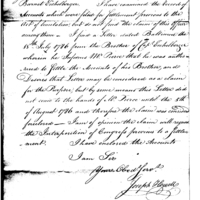 Barnet Eichelberger. I have examined the record of
Accounts which were filed for settlement previous to the
Act of limitation, but do not find the claim of this Officer
among them — I find a Letter dated Baltimore the
15th July 1786 from the Brother of Capt Eichelberger
wherein he informs Mr Pierce that he was autho-
rized to settle the Accounts of his Brother, and
Desires that Letter may be considered as a claim
for the Papers, but by some means this Letter did
not come to the hands of Mr Pierce until the 5th
of August 1786 and therefore the Claim was considered
precluded — I am of opinion the claim will require
the Interposition of Congress previous to a settle-
ment. I have enclosed the Accounts
I am Sir
Your Obed Serv
Joseph Howell